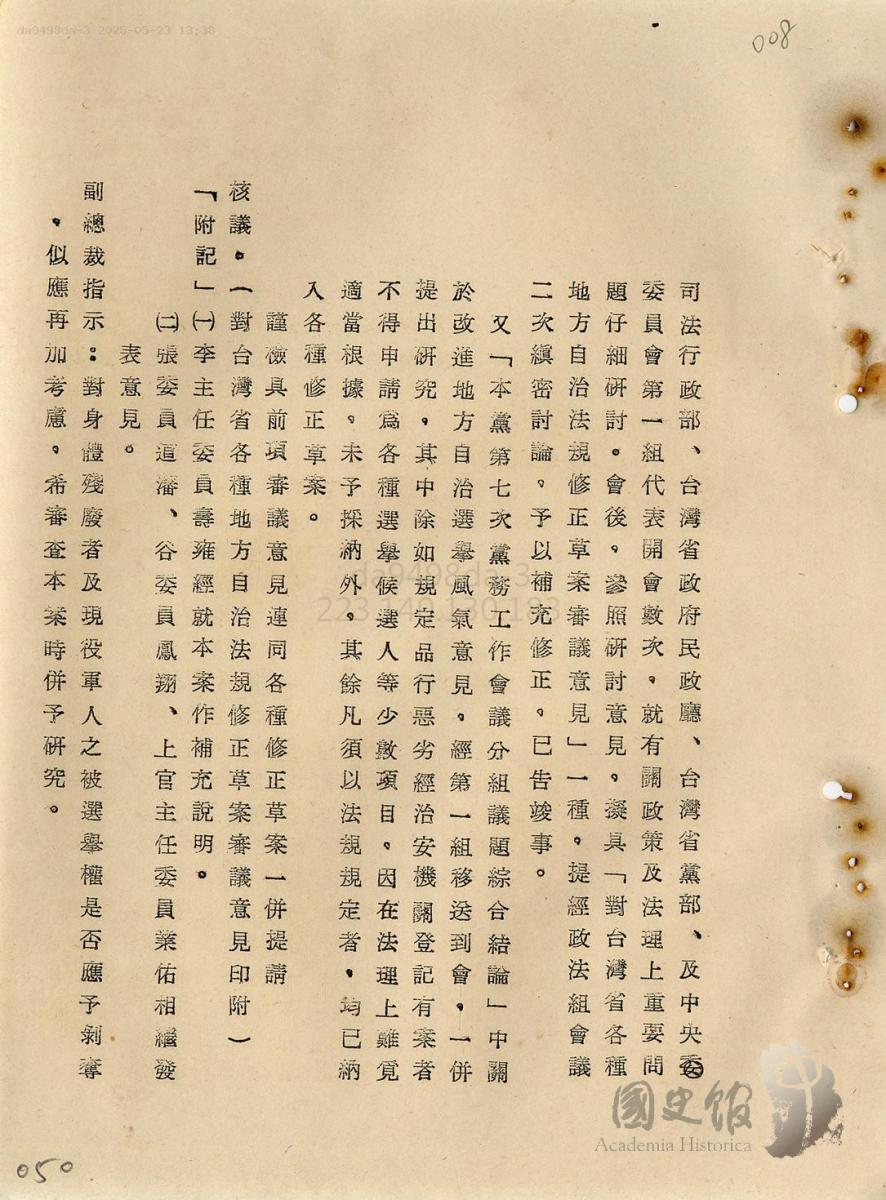 da9498da-3 2025-05-23 13:38
008
司法行政部、台灣省政府民政廳、台灣省黨部、及中央委
委員會第一組代表開會數次，就有關政策及法理上重要問
題仔細研討。會後，參照研討意見，擬具「對台灣省各種
地方自治法規修正草案審議意見」一種，提經政法組會議
二次縝密討論，予以補充修正，已告竣事。
又「本黨第七次黨務工作會議分組議題綜合結論」中關
於改進地方自治選舉風氣意見，經第一組移送到會，一併
提出研究，其中除如規定品行惡劣經治安機關登記有案者
不得申請為各種選舉候選人等少數項目，因在法理上難覓
適當根據，未予採納外，其餘凡須以法規規定者，均已納
入各種修正草案。
謹檢具前項審議意見連同各種修正草案一併提請
核議。（對台灣省各種地方自治法規修正草案審議意見印附）
「附記」㈠李主任委員壽雍經就本案作補充說明。
㈡張委員道藩、谷委員鳳翔、上官主任委員業佑相繼發
表意見。
副總裁指示：對身體殘廢者及現役軍人之被選舉權是否應予剝奪
，似應再加考慮，希審查本案時併予研究。
da9498da-3
國史館
Academia Historica
050